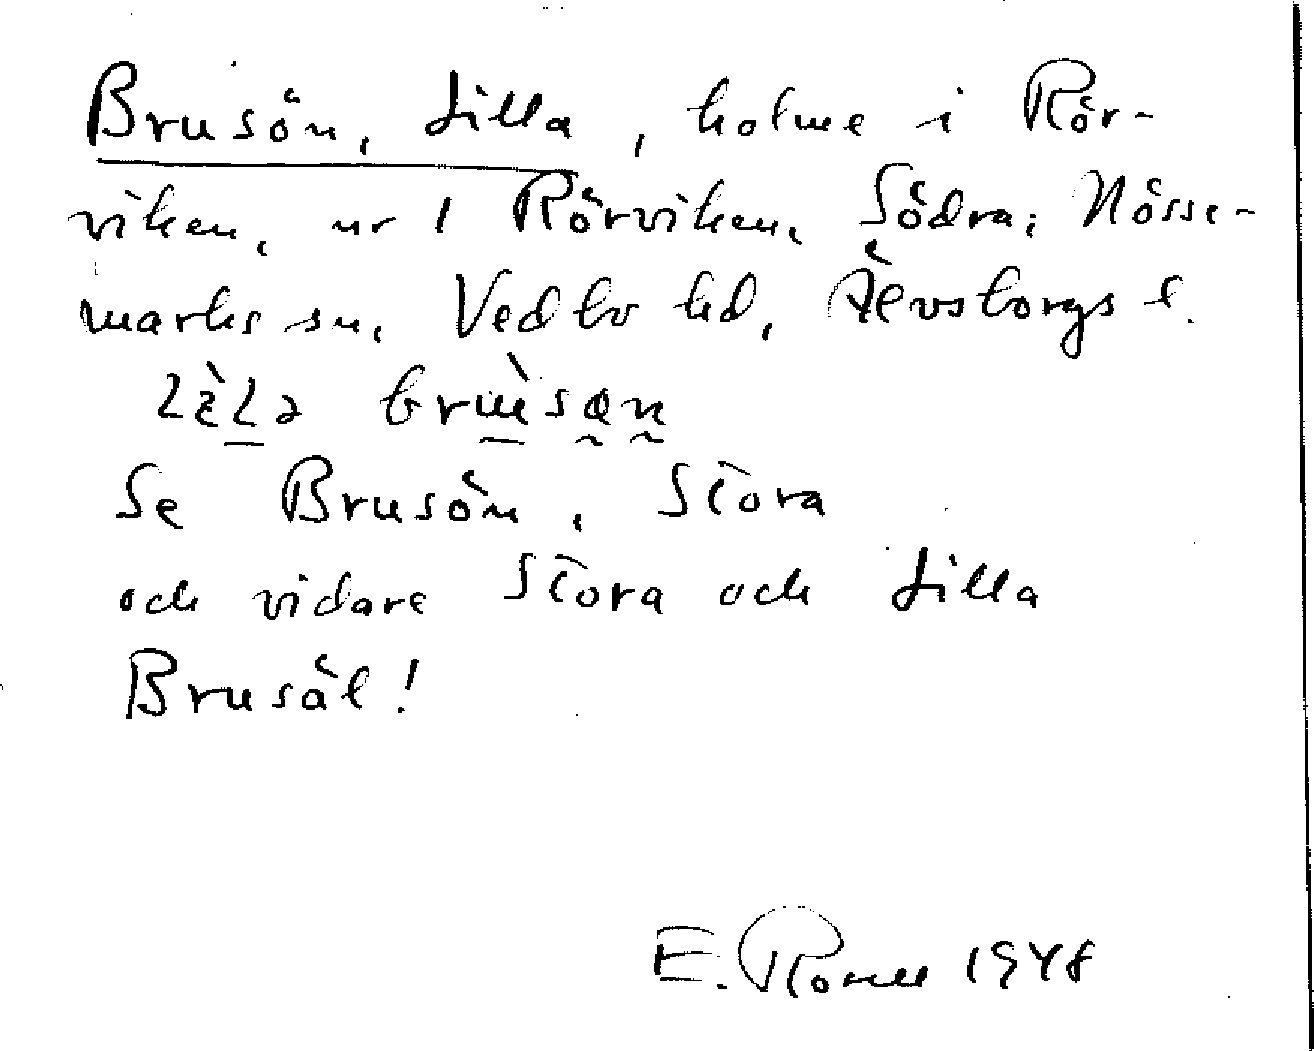 Brusön, Lilla, holme i Rör-
viken, nr 1 Rörviken, Södra; Nösse-
marks sn, Vedbo hd, Älvsborgs l.
Se Brusön, Stora
och vidare Stora och Lilla
Brusäl!
E. 1948